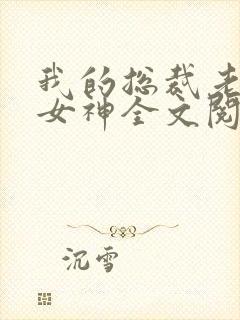 我的总裁老
女神全文阅
沉雪